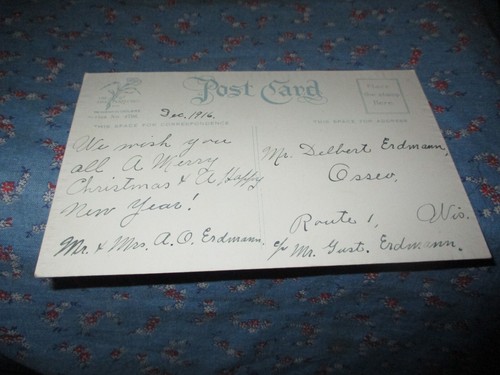 Post Card
Place
Here
Dec. 1916.
THIS SPACE FOR CORRESPONDENCE
THIS SPACE FOR ADDRESS
We wish you
all A Merry
Christmas & A Happy
New Year!
Mr. & Mrs. A. O. Erdmann.
Mr. Delbert Erdmann,
Osseo,
Route 1, Wis.
c/o Mr. Gust. Erdmann.